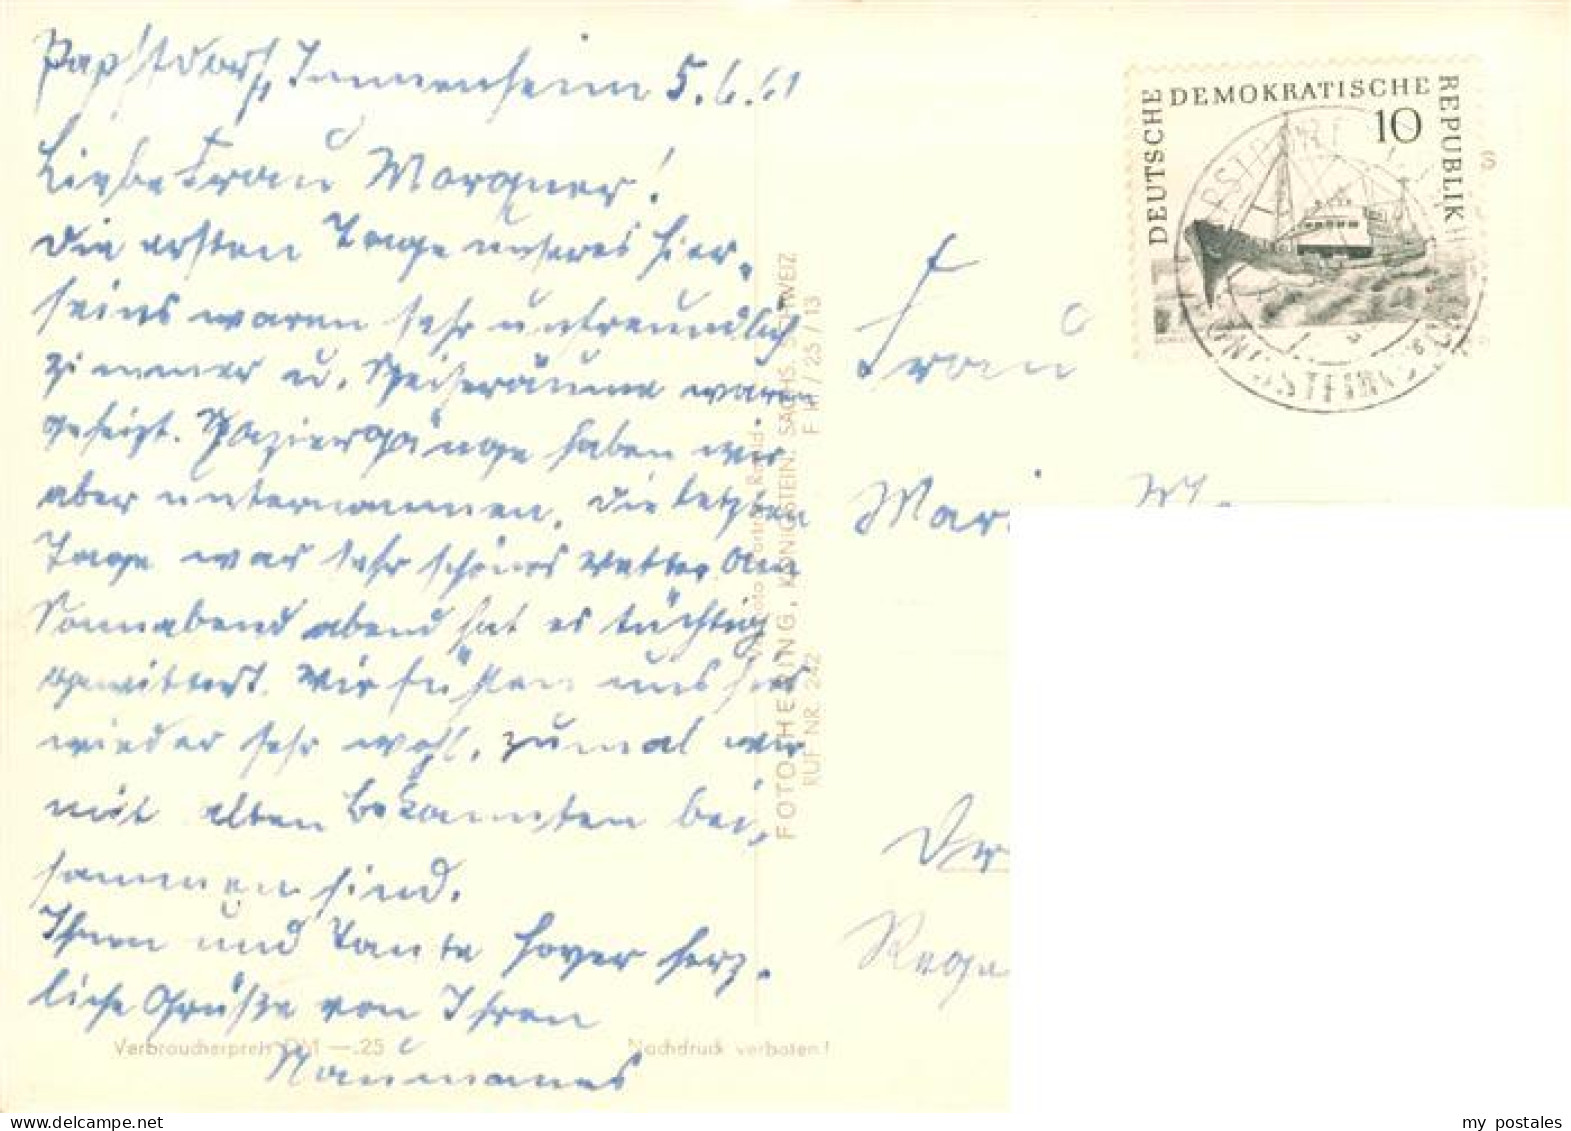 Papstdorf, Immenheim 5.6.61
Liebe Frau Morgner!
Die ersten Tage unseres Hier-
seins waren sehr unfreundlich
Zimmer u. Speiseräume waren
geheizt. Spaziergänge haben wir
aber unternommen. Die letzten
Tage war sehr schönes Wetter. Am
Sonnabend abend hat es tüchtig
gewittert. Wir fühlen uns hier
wieder sehr wohl, zumal wir
mit alten Bekannten bei-
sammen sind.
Ihnen und Tante Hoyer herz-
liche Grüße von Ihren
Naumanns
Verbraucherpreis DM —.25
Nachdruck verboten!
FOTO-HERING, KÖNIGSTEIN. SÄCHS. SCHWEIZ
RUF NR. 242 F III / 25 / 13
DEUTSCHE DEMOKRATISCHE REPUBLIK
10
Frau